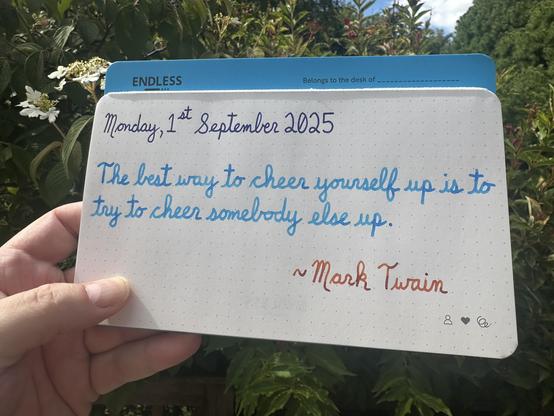 ENDLESS
Belongs to the desk of
Monday, 1st September 2025
The best way to cheer yourself up is to
try to cheer somebody else up.
~ Mark Twain